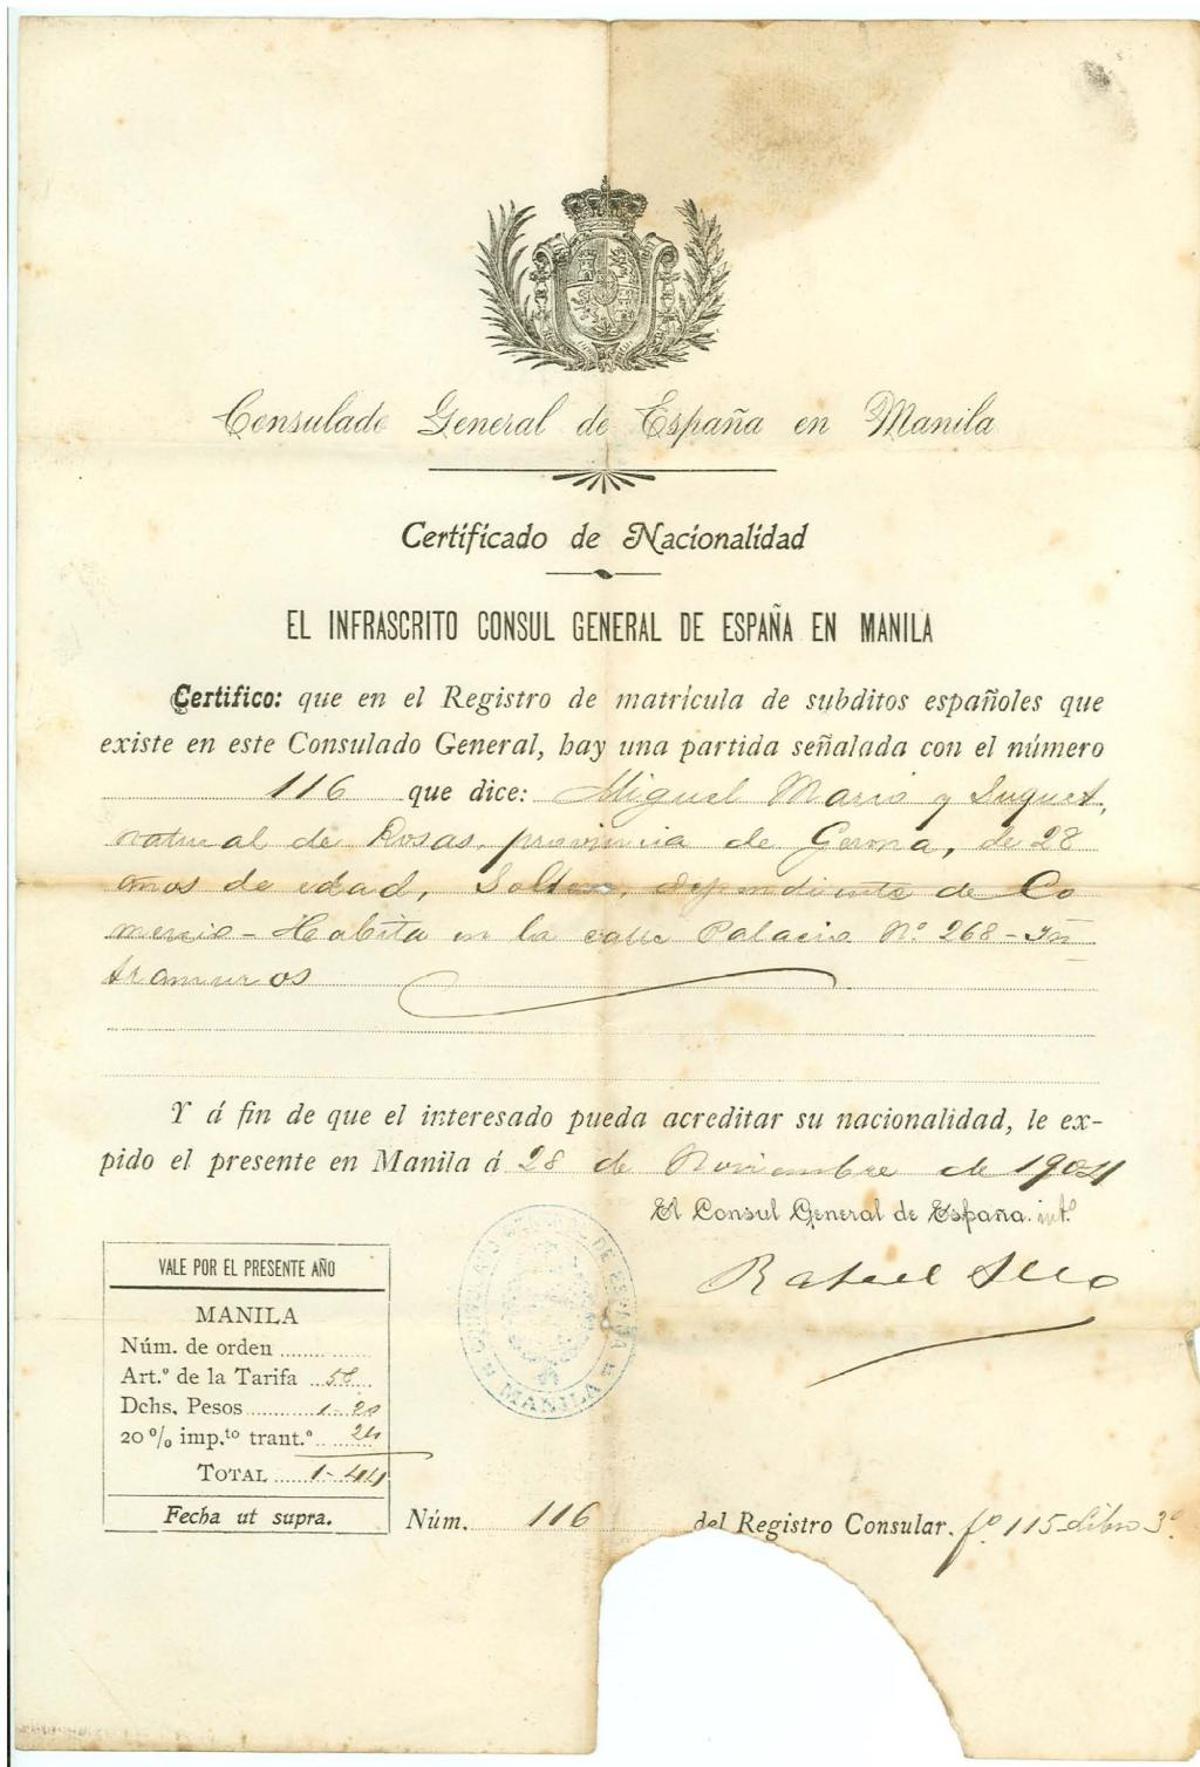 Consulado General de España en Manila
Certificado de Nacionalidad
EL INFRASCRITO CONSUL GENERAL DE ESPAÑA EN MANILA
Certifico: que en el Registro de matrícula de subditos españoles que
existe en este Consulado General, hay una partida señalada con el número
116 que dice: Miguel Mario y Suquet,
natural de Rosas, provincia de Gerona, de 28
años de edad, Soltero, dependiente de Co
mercio - Habita en la calle Palacio Nº 268 - In
tramuros
Y á fin de que el interesado pueda acreditar su nacionalidad, le ex-
pido el presente en Manila á 28 de Noviembre de 1904
El Consul General de España. intº
Rafael
VALE POR EL PRESENTE AÑO
MANILA
Núm. de orden
Art.º de la Tarifa 58
Dchs. Pesos 1-20
20 % imp.to trant.º 24
TOTAL 1-44
Fecha ut supra.
CONSULADO GENERAL DE ESPAÑA
MANILA
Núm. 116 del Registro Consular. fº 115 Libro 3º